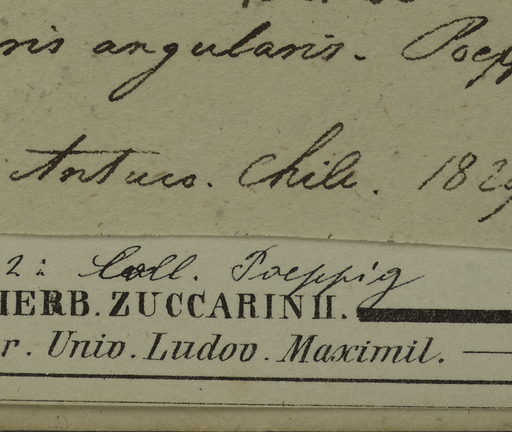 ris angularis. Poepp
Antuco. Chile. 1829
2: Coll. Poeppig
HERB. ZUCCARINII.
r. Univ. Ludov. Maximil.